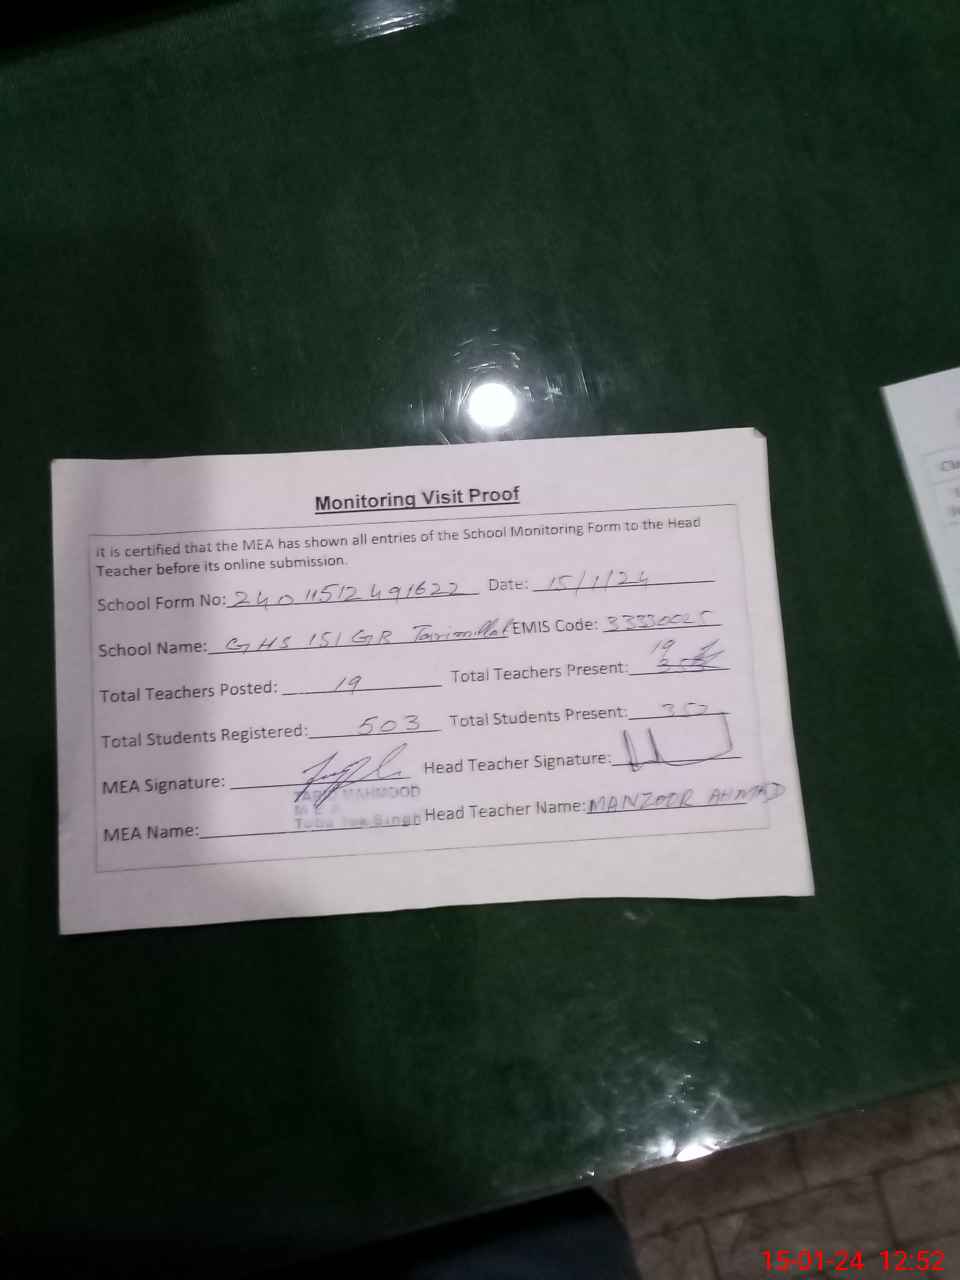 Monitoring Visit Proof
it is certified that the MEA has shown all entries of the School Monitoring Form to the Head
Teacher before its online submission.
School Form No: 24011512491622 Date: 15/1/24
School Name: GHS 151 GR EMIS Code: 33330025
Total Teachers Posted: 19 Total Teachers Present: 19
Total Students Registered: 503 Total Students Present: 352
MEA Signature: Head Teacher Signature:
MAHMOOD
M E A
MEA Name: Toba Tek Singh Head Teacher Name: MANZOOR AHMAD
15-01-24 12:52